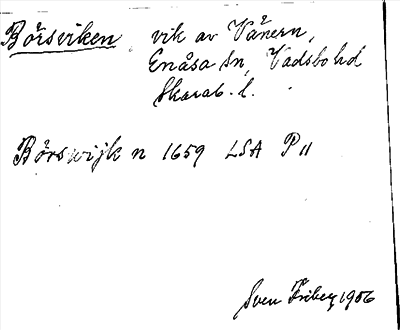 Börsviken vik av Vänern,
Enåsa sn, Vadsbo hd
Skarab. l.
Börswijk n 1659 LSA P 11
Sven Friberg 1906